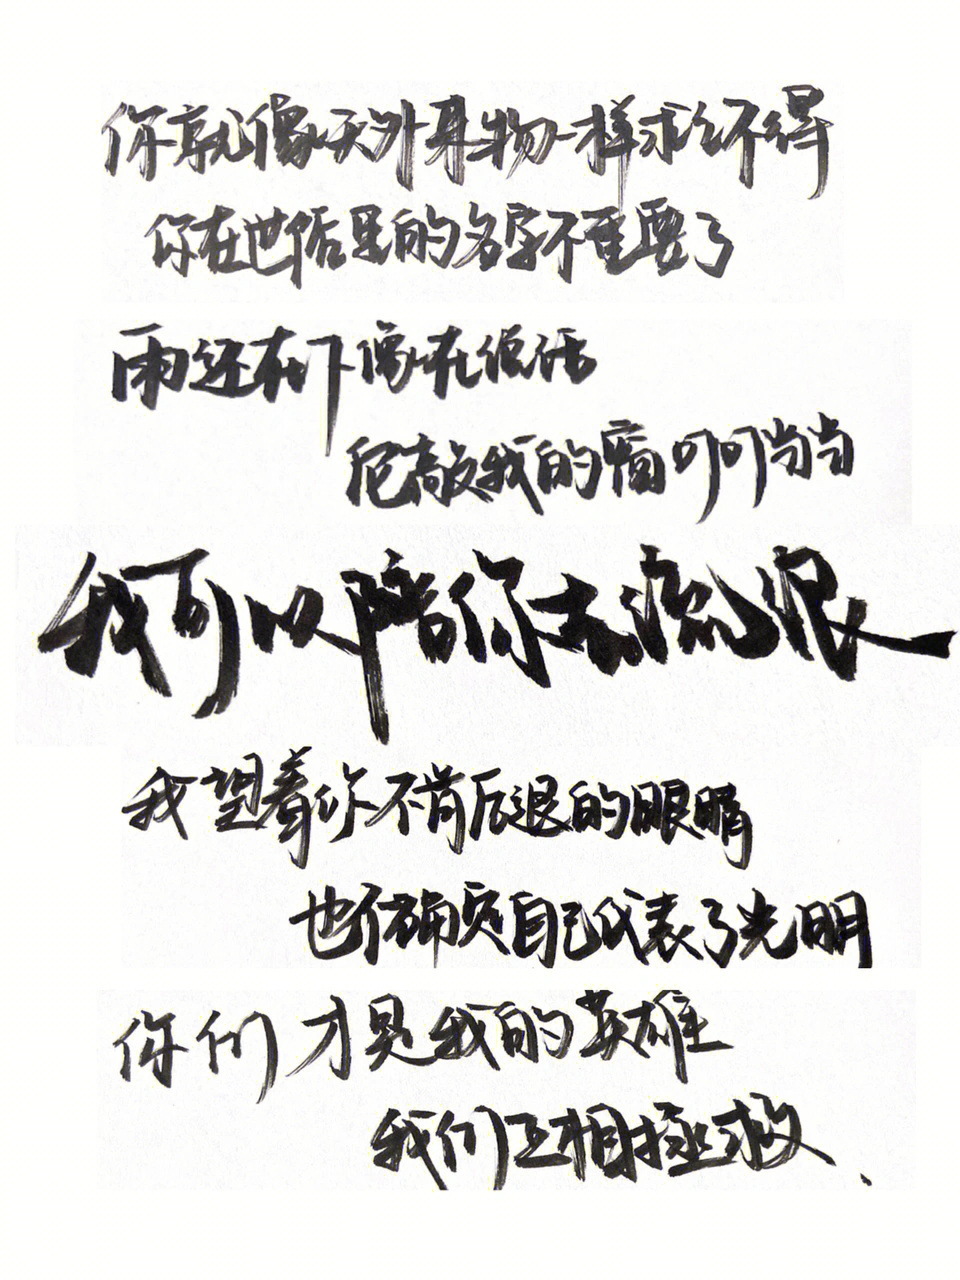 你就像天外来物一样求之不得
你在世俗里的名字不重要了
雨还在下像在说话
它敲我的窗叮叮当当
我可以陪你去流浪
我望着你不肯后退的眼睛
也不确定自己代表了光明
你们才是我的英雄
我们互相拯救